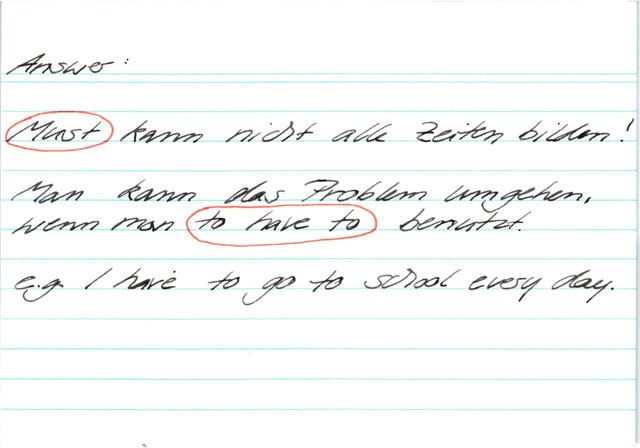 Answer:
Must kann nicht alle Zeiten bilden!
Man kann das Problem umgehen,
wenn man to have to benutzt.
e.g. I have to go to school every day.